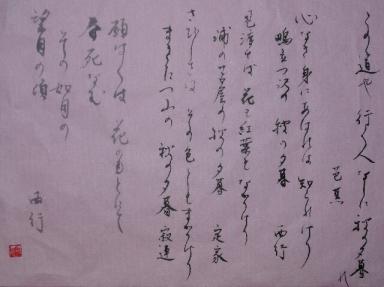 この道や 行く人なしに 秋の夕暮
芭蕉
心なき 身にもあはれは 知られけり
鴫立つ沢の 秋の夕暮 西行
見渡せば 花も紅葉も なかりけり
浦の苫屋の 秋の夕暮 定家
さびしさは その色としも なかりけり
まき立つ山の 秋の夕暮 寂蓮
願はくは 花のもとにて
春死なむ
その如月の
望月の頃
西行